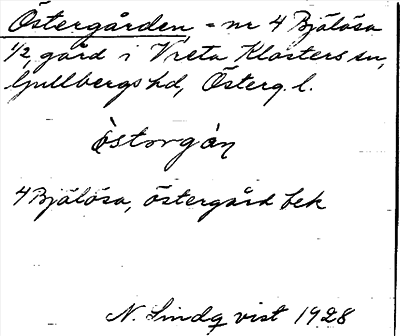 Östergården = nr 4 Bjälösa
1/2 gård i Vreta Klosters sn,
Gullbergs hd, Österg. l.
östorgån
4 Bjälösa, östergård bek
N. Lindqvist 1928